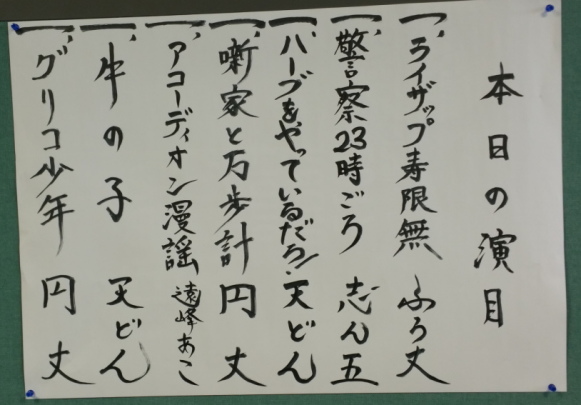 本日の演目
一、ライザップ寿限無 ふう丈
一、警察23時ごろ 志ん五
一、ハーブをやっているだろ! 天どん
一、噺家と万歩計 円丈
一、アコーディオン漫謡 遠峰あこ
一、牛の子 天どん
一、グリコ少年 円丈